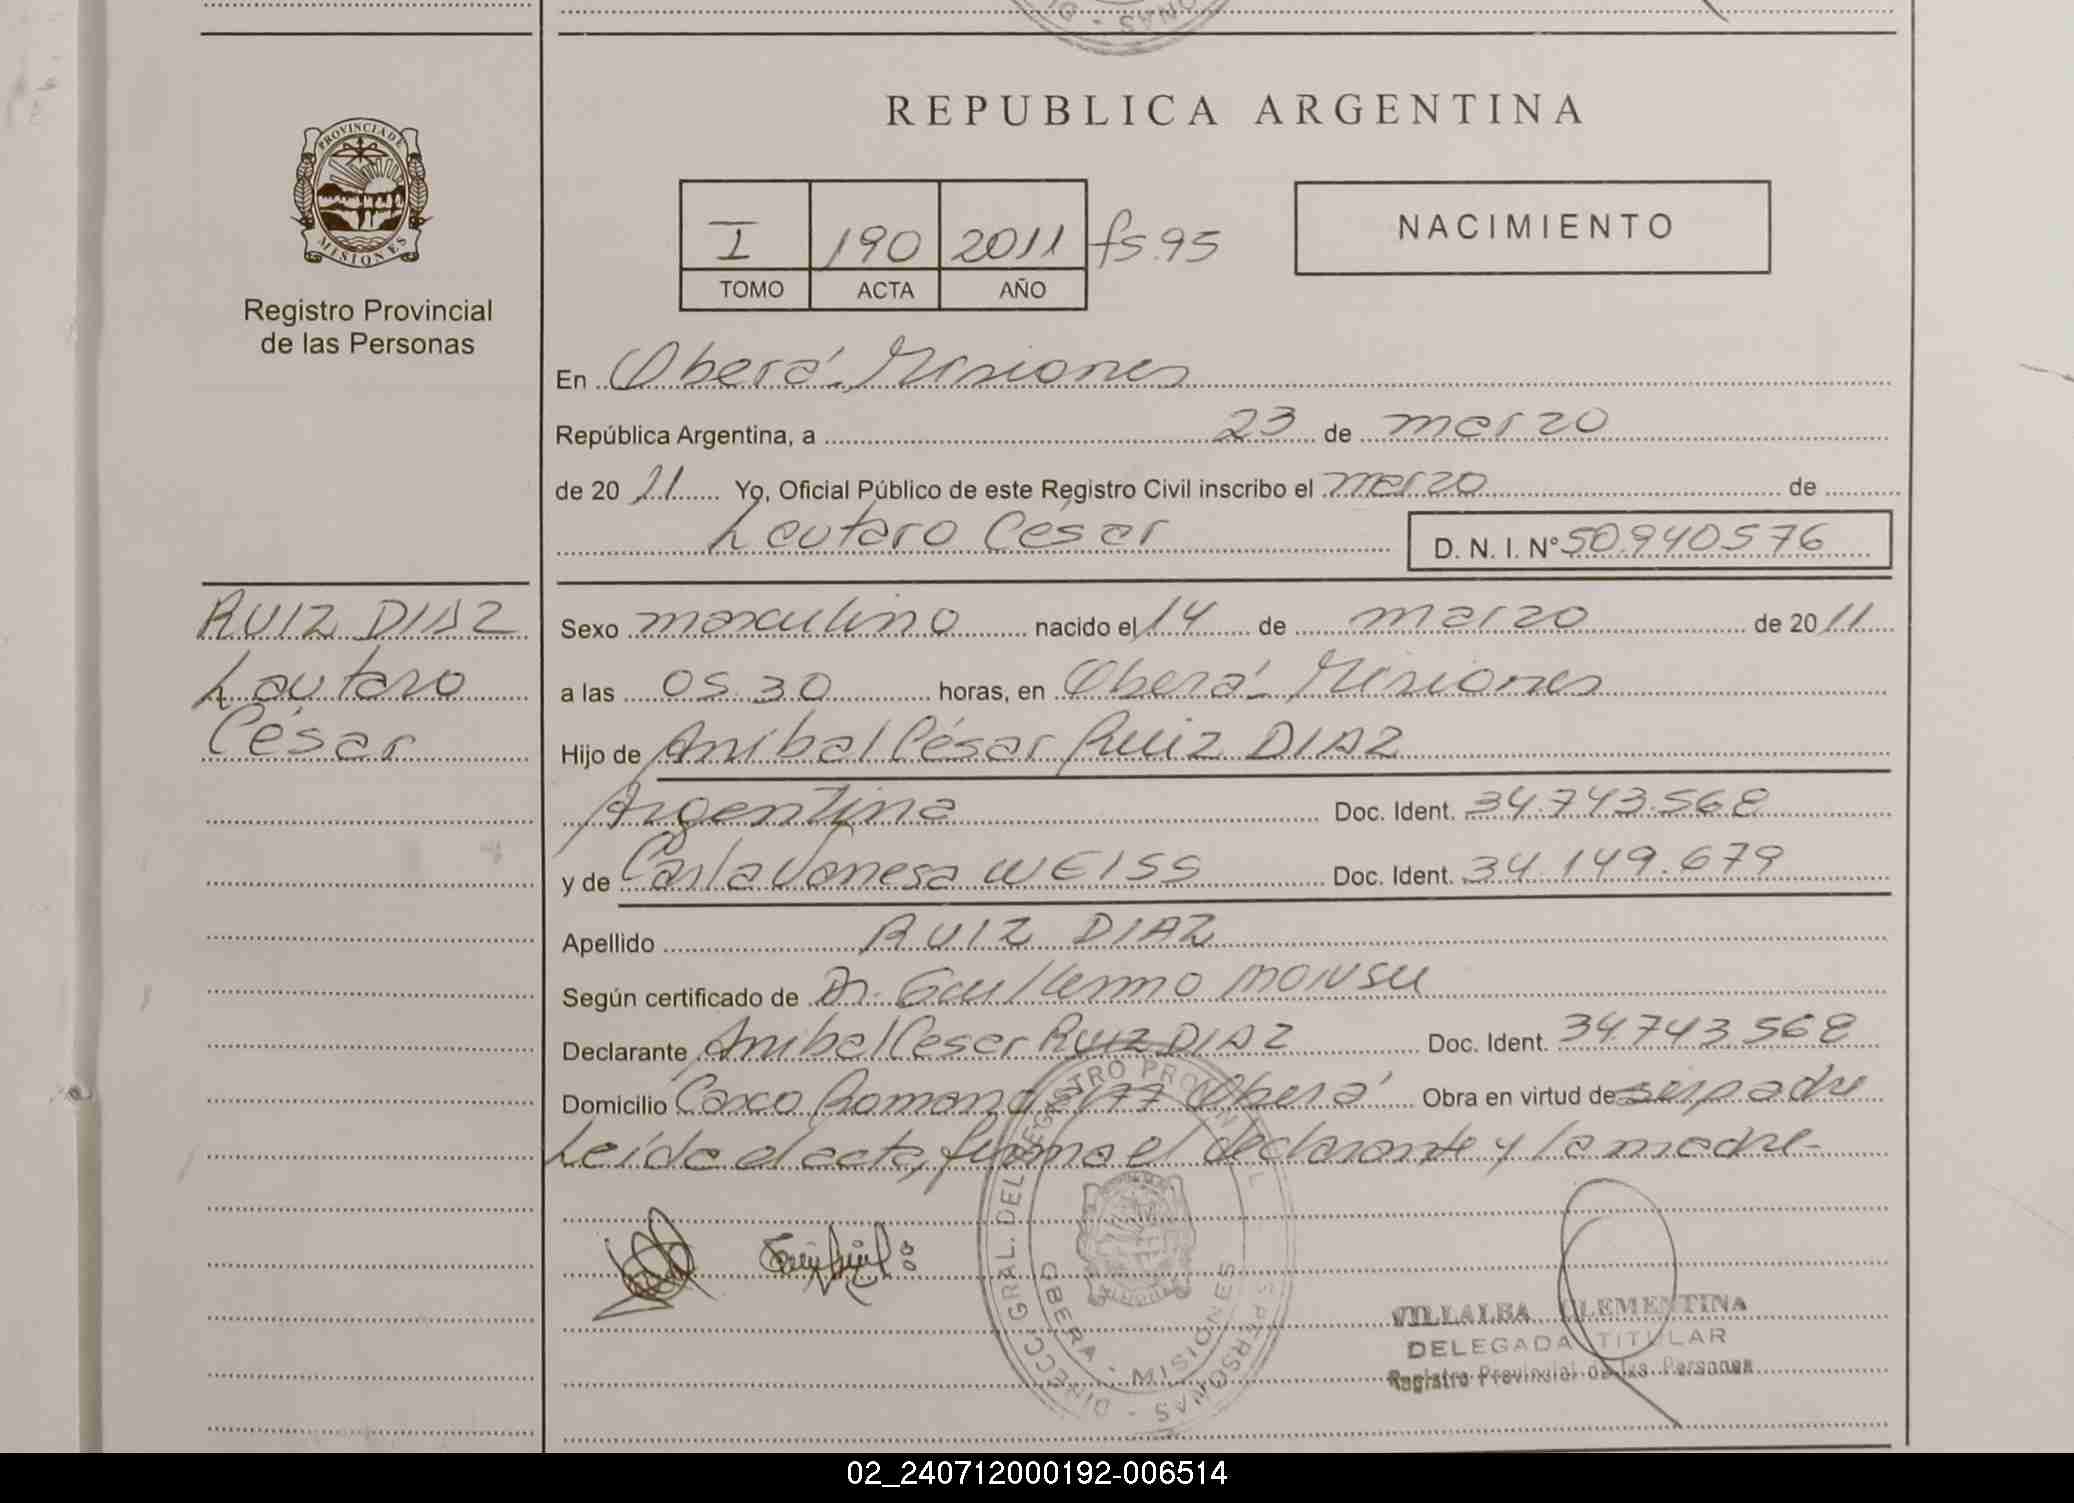 REPUBLICA ARGENTINA
PROVINCIA DE
MISIONES
Registro Provincial
de las Personas
I 190 2011 fs. 95
TOMO ACTA AÑO
NACIMIENTO
En Oberá - Misiones
República Argentina, a 23 de marzo
de 20 11 Yo, Oficial Público de este Registro Civil inscribo el marzo de
Lautaro César D. N. I. N° 50.940576
RUIZ DIAZ
Lautaro
César
Sexo masculino nacido el 14 de marzo de 20 11
a las 05.30 horas, en Oberá - Misiones
Hijo de Anibal César Ruiz DIAZ
Argentina Doc. Ident. 34.743.568
y de Carla Vanesa WEISS Doc. Ident. 34.149.679
Apellido RUIZ DIAZ
Según certificado de Dr. Guillermo MONSU
Declarante Anibal Cesar RUIZ DIAZ Doc. Ident. 34.743.568
Domicilio Casco Romano Oberá Obra en virtud de ser padre
Leída el acta, firma el declarante y la madre -
DIRECC. GRAL. DEL REGISTRO PROVINCIAL PERSONAS
OBERA - MISIONES
VILLALBA CLEMENTINA
DELEGADA TITULAR
Registro Provincial de las Personas
02_240712000192-006514